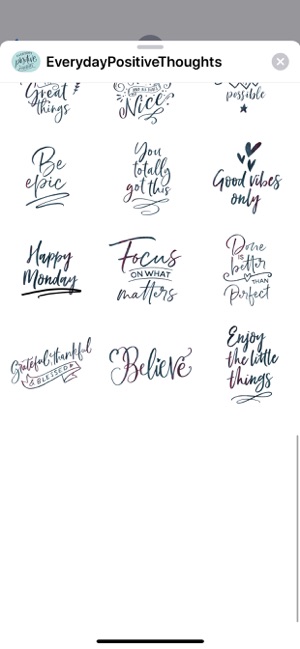 EverydayPositiveThoughts
Great
things
Nice
possible
Be
epic
You
totally
got this
Good vibes
only
Happy
Monday
Focus
ON WHAT
matters
Done
IS
better
THAN
Perfect
Grateful, thankful
& BLESSED
Believe
Enjoy
the little
things